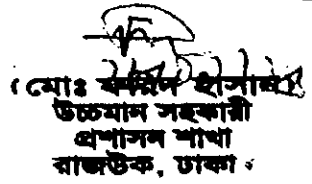 ( মোঃ হাসান )
উচ্চমান সহকারী
প্রশাসন শাখা
রাজউক, ঢাকা ।